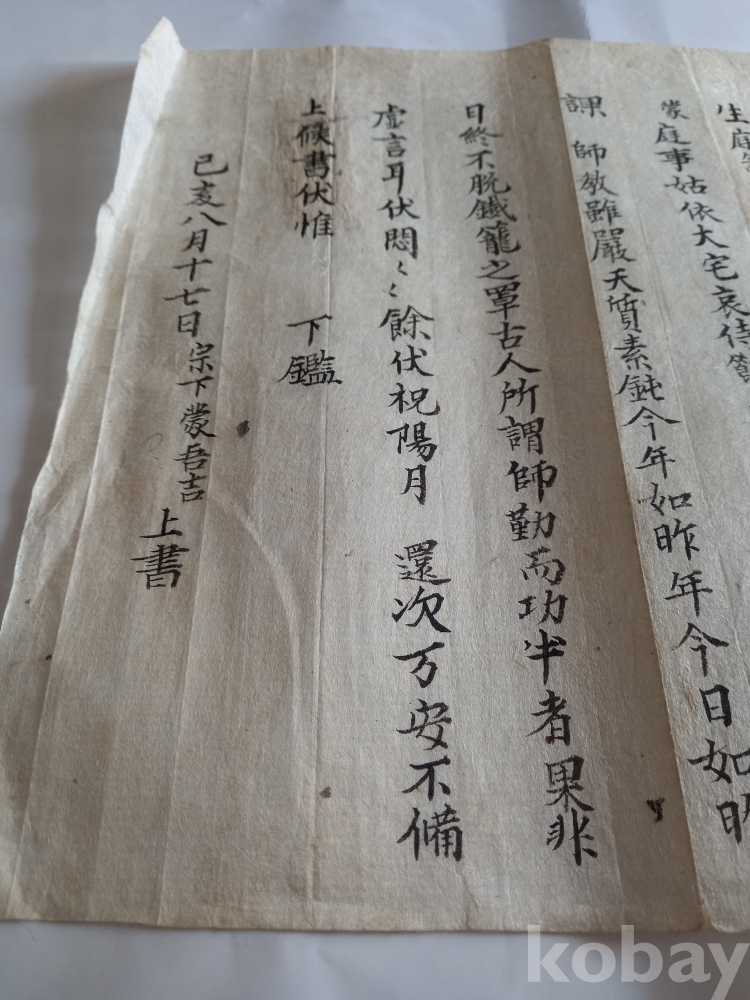 生庭
蒙庭事姑依大宅哀侍
課 師教雖嚴天質素鈍今年如昨年今日如昨
日終不脫鐵籠之罩古人所謂師勤而功半者果非
虛言耳伏悶〻餘伏祝陽月 還次万安不備
上候書伏惟 下鑑
己亥八月十七日宗下蒙吾吉 上書
kobay